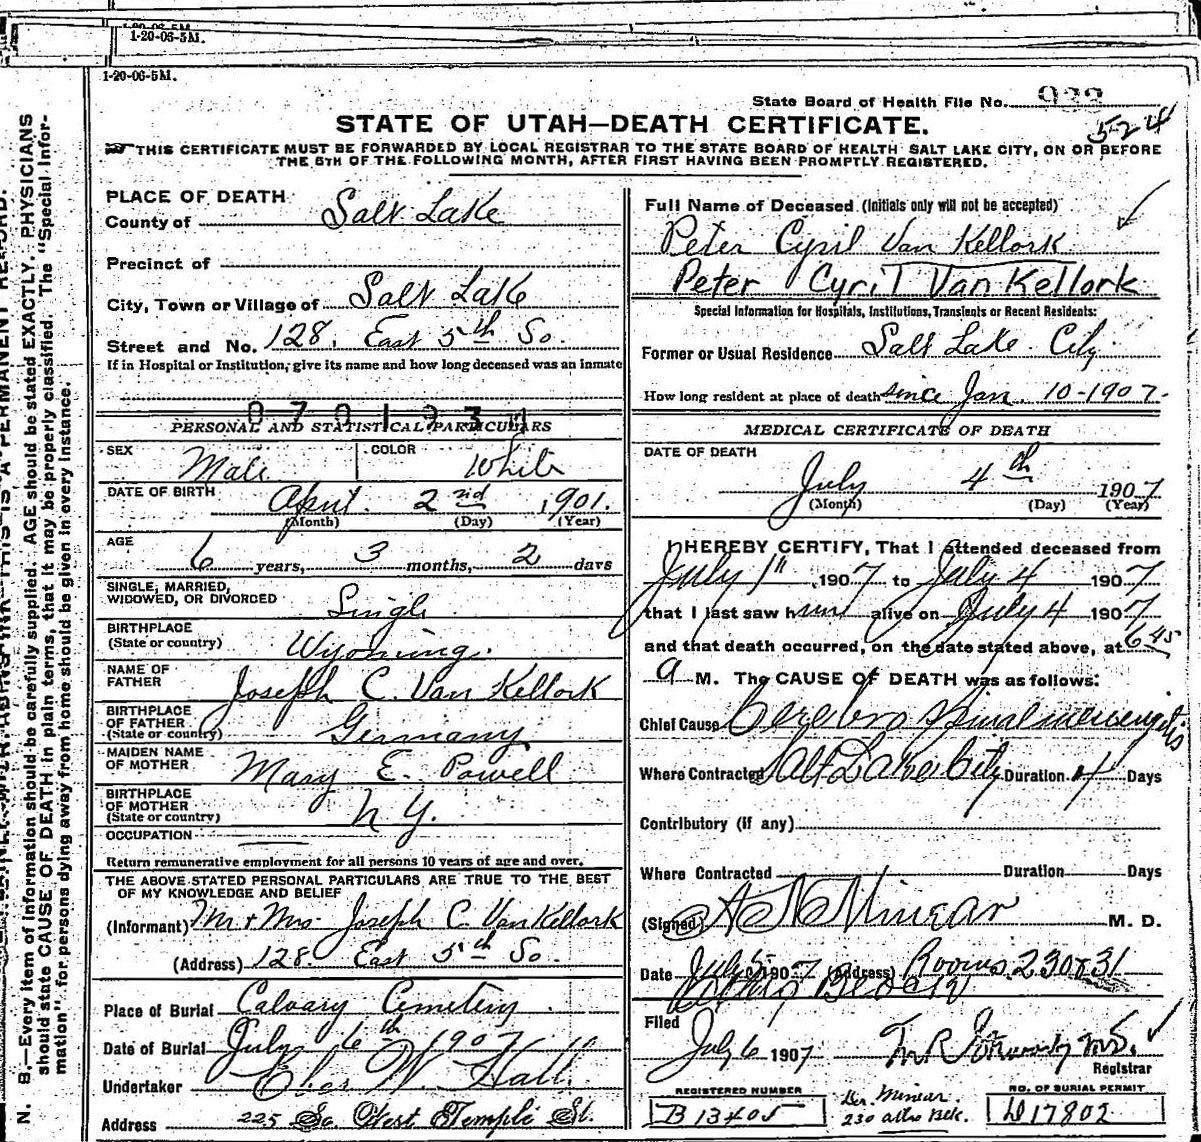 1-20-06-5M.
1-20-06-5M.
1-20-06-5M.
State Board of Health File No. 933
524
STATE OF UTAH—DEATH CERTIFICATE.
THIS CERTIFICATE MUST BE FORWARDED BY LOCAL REGISTRAR TO THE STATE BOARD OF HEALTH SALT LAKE CITY, ON OR BEFORE
THE 5TH OF THE FOLLOWING MONTH, AFTER FIRST HAVING BEEN PROMPTLY REGISTERED.
N. B.—Every item of information should be carefully supplied. AGE should be stated EXACTLY. PHYSICIANS
should state CAUSE OF DEATH in plain terms, that it may be properly classified. The "Special Infor-
mation" for persons dying away from home should be given in every instance.
PLACE OF DEATH
County of Salt Lake
Precinct of
City, Town or Village of Salt Lake
Street and No. 128. East 5th So.
If in Hospital or Institution, give its name and how long deceased was an inmate
0701931
PERSONAL AND STATISTICAL PARTICULARS
SEX Male COLOR White
DATE OF BIRTH April 2nd 1901.
(Month) (Day) (Year)
AGE 6 years, 3 months, 2 days
SINGLE, MARRIED,
WIDOWED, OR DIVORCED Single
BIRTHPLACE
(State or country) Wyoming.
NAME OF
FATHER Joseph C. Van Kellork
BIRTHPLACE
OF FATHER
(State or country) Germany
MAIDEN NAME
OF MOTHER Mary E. Powell
BIRTHPLACE
OF MOTHER
(State or country) N.Y.
OCCUPATION
Return remunerative employment for all persons 10 years of age and over.
THE ABOVE STATED PERSONAL PARTICULARS ARE TRUE TO THE BEST
OF MY KNOWLEDGE AND BELIEF
(Informant) Mr + Mrs Joseph C. Van Kellork
(Address) 128 East 5th So.
Place of Burial Calvary Cemetery.
Date of Burial July 6th 1907
Undertaker Chas W. Hall
Address 225 So. West Temple St.
Full Name of Deceased (Initials only will not be accepted)
Peter Cyril Van Kellork
Peter Cyril Van Kellork
Special Information for Hospitals, Institutions, Transients or Recent Residents:
Former or Usual Residence Salt Lake City.
How long resident at place of death since Jan 10-1907.
MEDICAL CERTIFICATE OF DEATH
DATE OF DEATH
July 4th 1907
(Month) (Day) (Year)
I HEREBY CERTIFY, That I attended deceased from
July 1st 1907 to July 4 1907
that I last saw him alive on July 4 1907
and that death occurred, on the date stated above, at 6 45
a M. The CAUSE OF DEATH was as follows:
Chief Cause Cerebro Spinal meningitis
Where Contracted Salt Lake City Duration 4 Days
Contributory (if any)
Where Contracted Duration Days
(Signed) Minear M. D.
Date July 5 1907 (Address) Rooms 230 & 31
Block
Filed
July 6 1907
Registrar
REGISTERED NUMBER
B 13405
Dr. Minear.
230 Blk.
NO. OF BURIAL PERMIT
D 17802